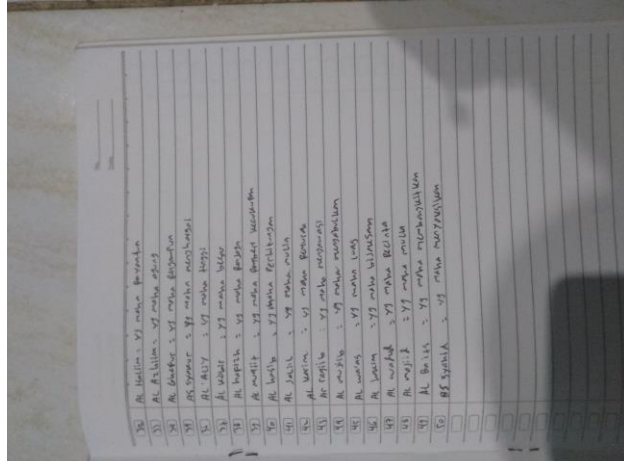 No
Date
32 AL Halim = yg maha Penyantun
33 AL Azhiim = yg maha agung
34 AL Ghafur = yg maha Pengampun
35 AS Syakur = yg maha menghargai
36 AL 'Aliy = yg maha tinggi
37 AL Kabir = yg maha besar
38 AL hapizh = yg maha
39 AL = yg maha kecukupan
40 AL hasib = yg maha Perhitungan
41 AL Jalil = yg maha mulia
42 AL karim = yg maha Pemurah
43 Ar raqib = yg maha mengawasi
44 AL mujib = yg maha mengabulkan
45 AL wasi = yg maha luas
46 AL hakim = yg maha bijaksana
47 AL wadud = yg maha Pecinta
48 AL majid = yg maha mulia
49 AL Baits = yg maha membangkitkan
50 AS syahid = yg maha menyaksikan